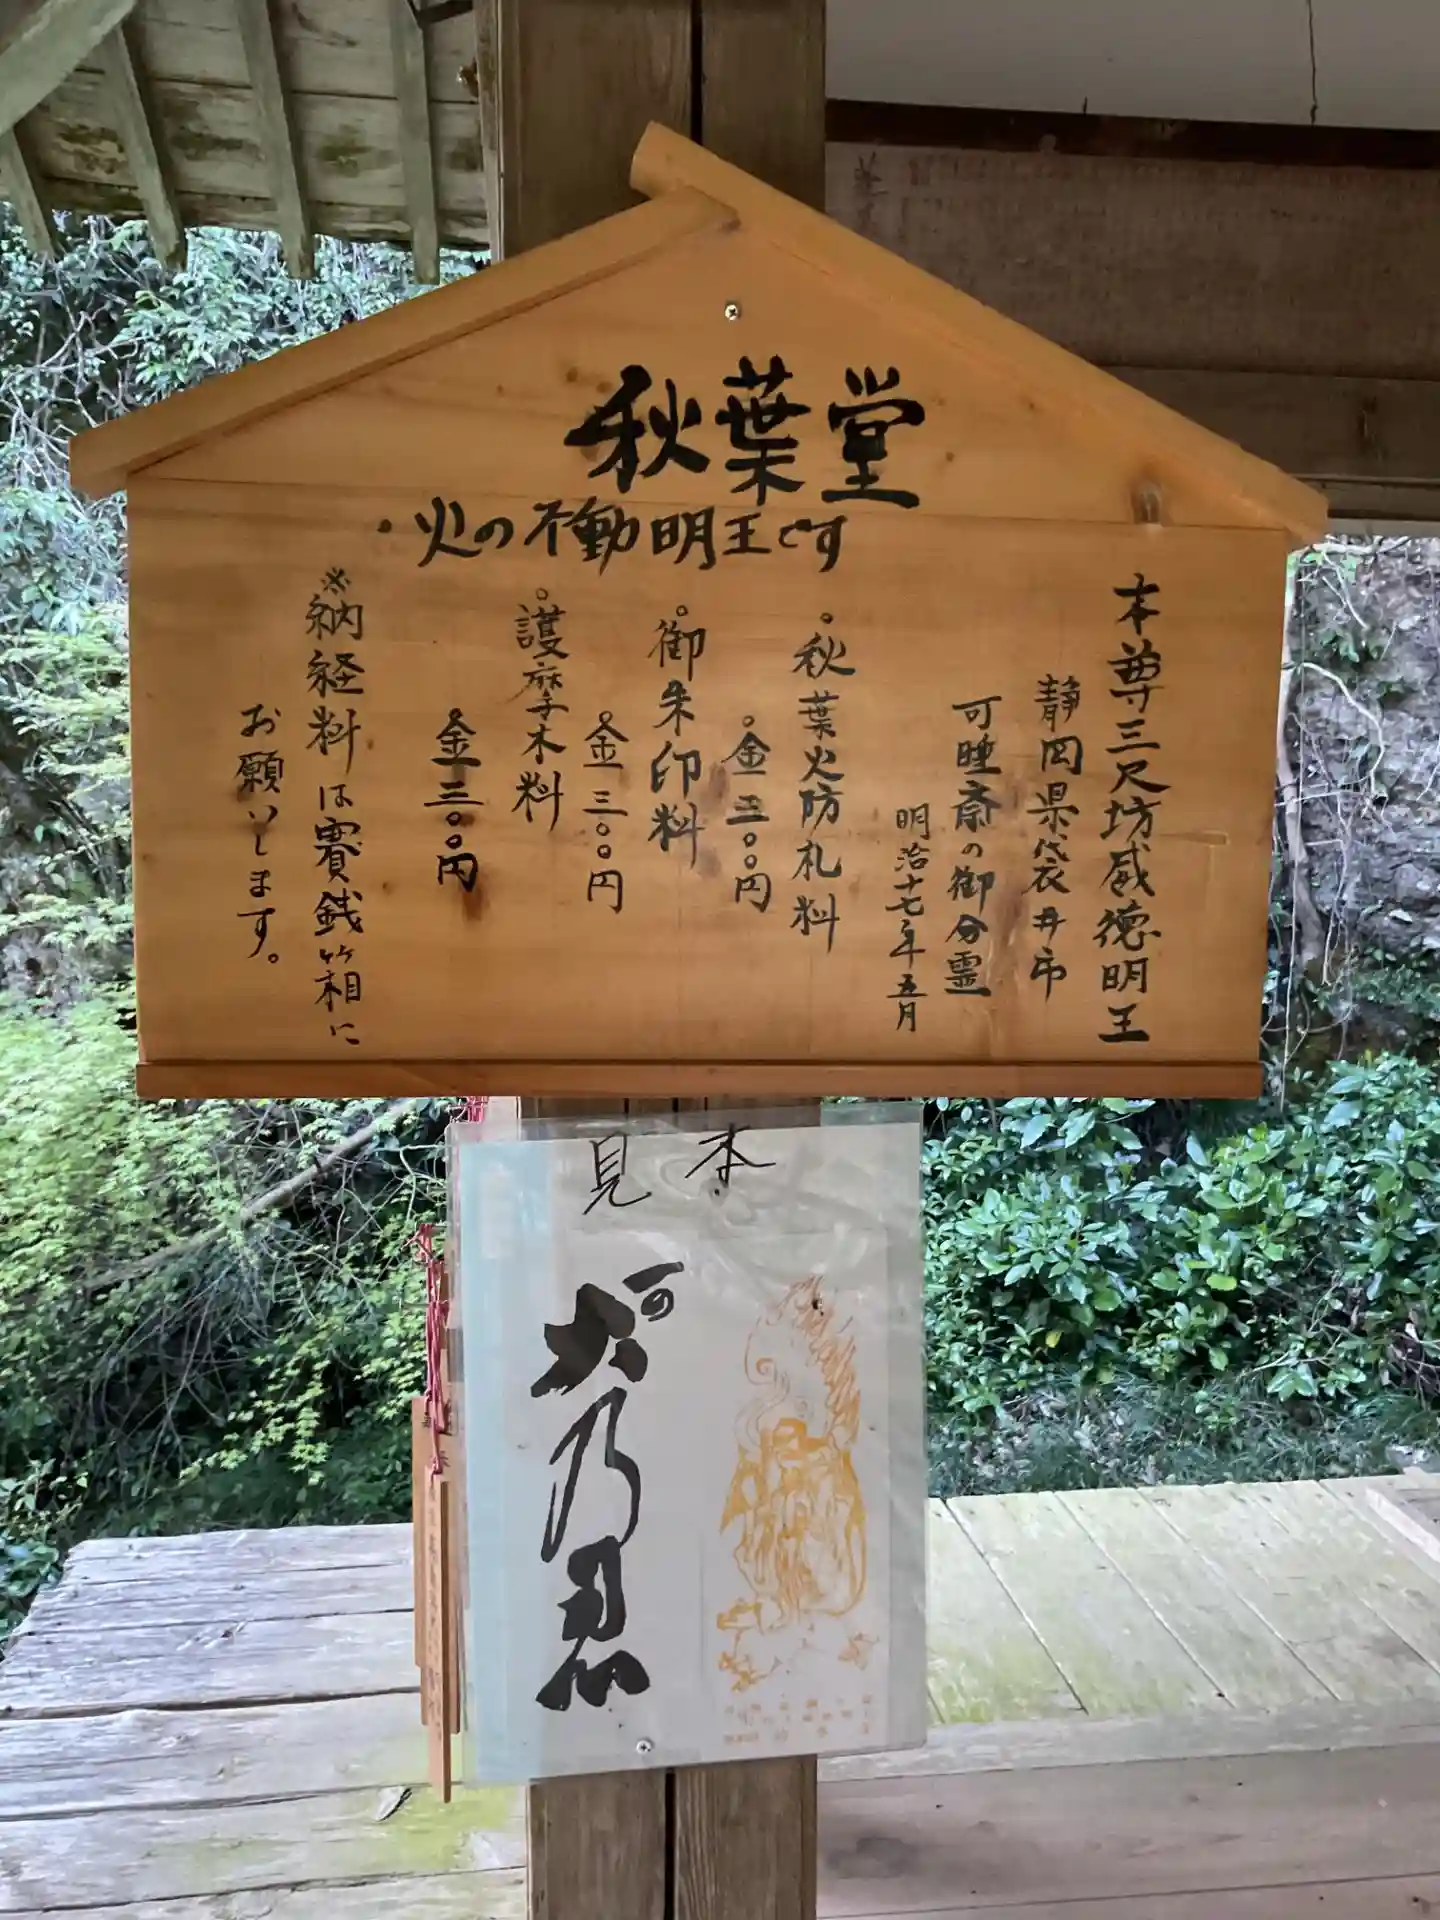 秋葉堂
・火の不動明王です
本尊三尺坊威徳明王
静岡県袋井市
可睡斎の御分霊
明治十七年五月
・秋葉火防札料
。金三〇〇円
。御朱印料
。金三〇〇円
。護摩木料
。金三〇〇円
※納経料は賽銭箱に
お願いします。
見本
火乃忍